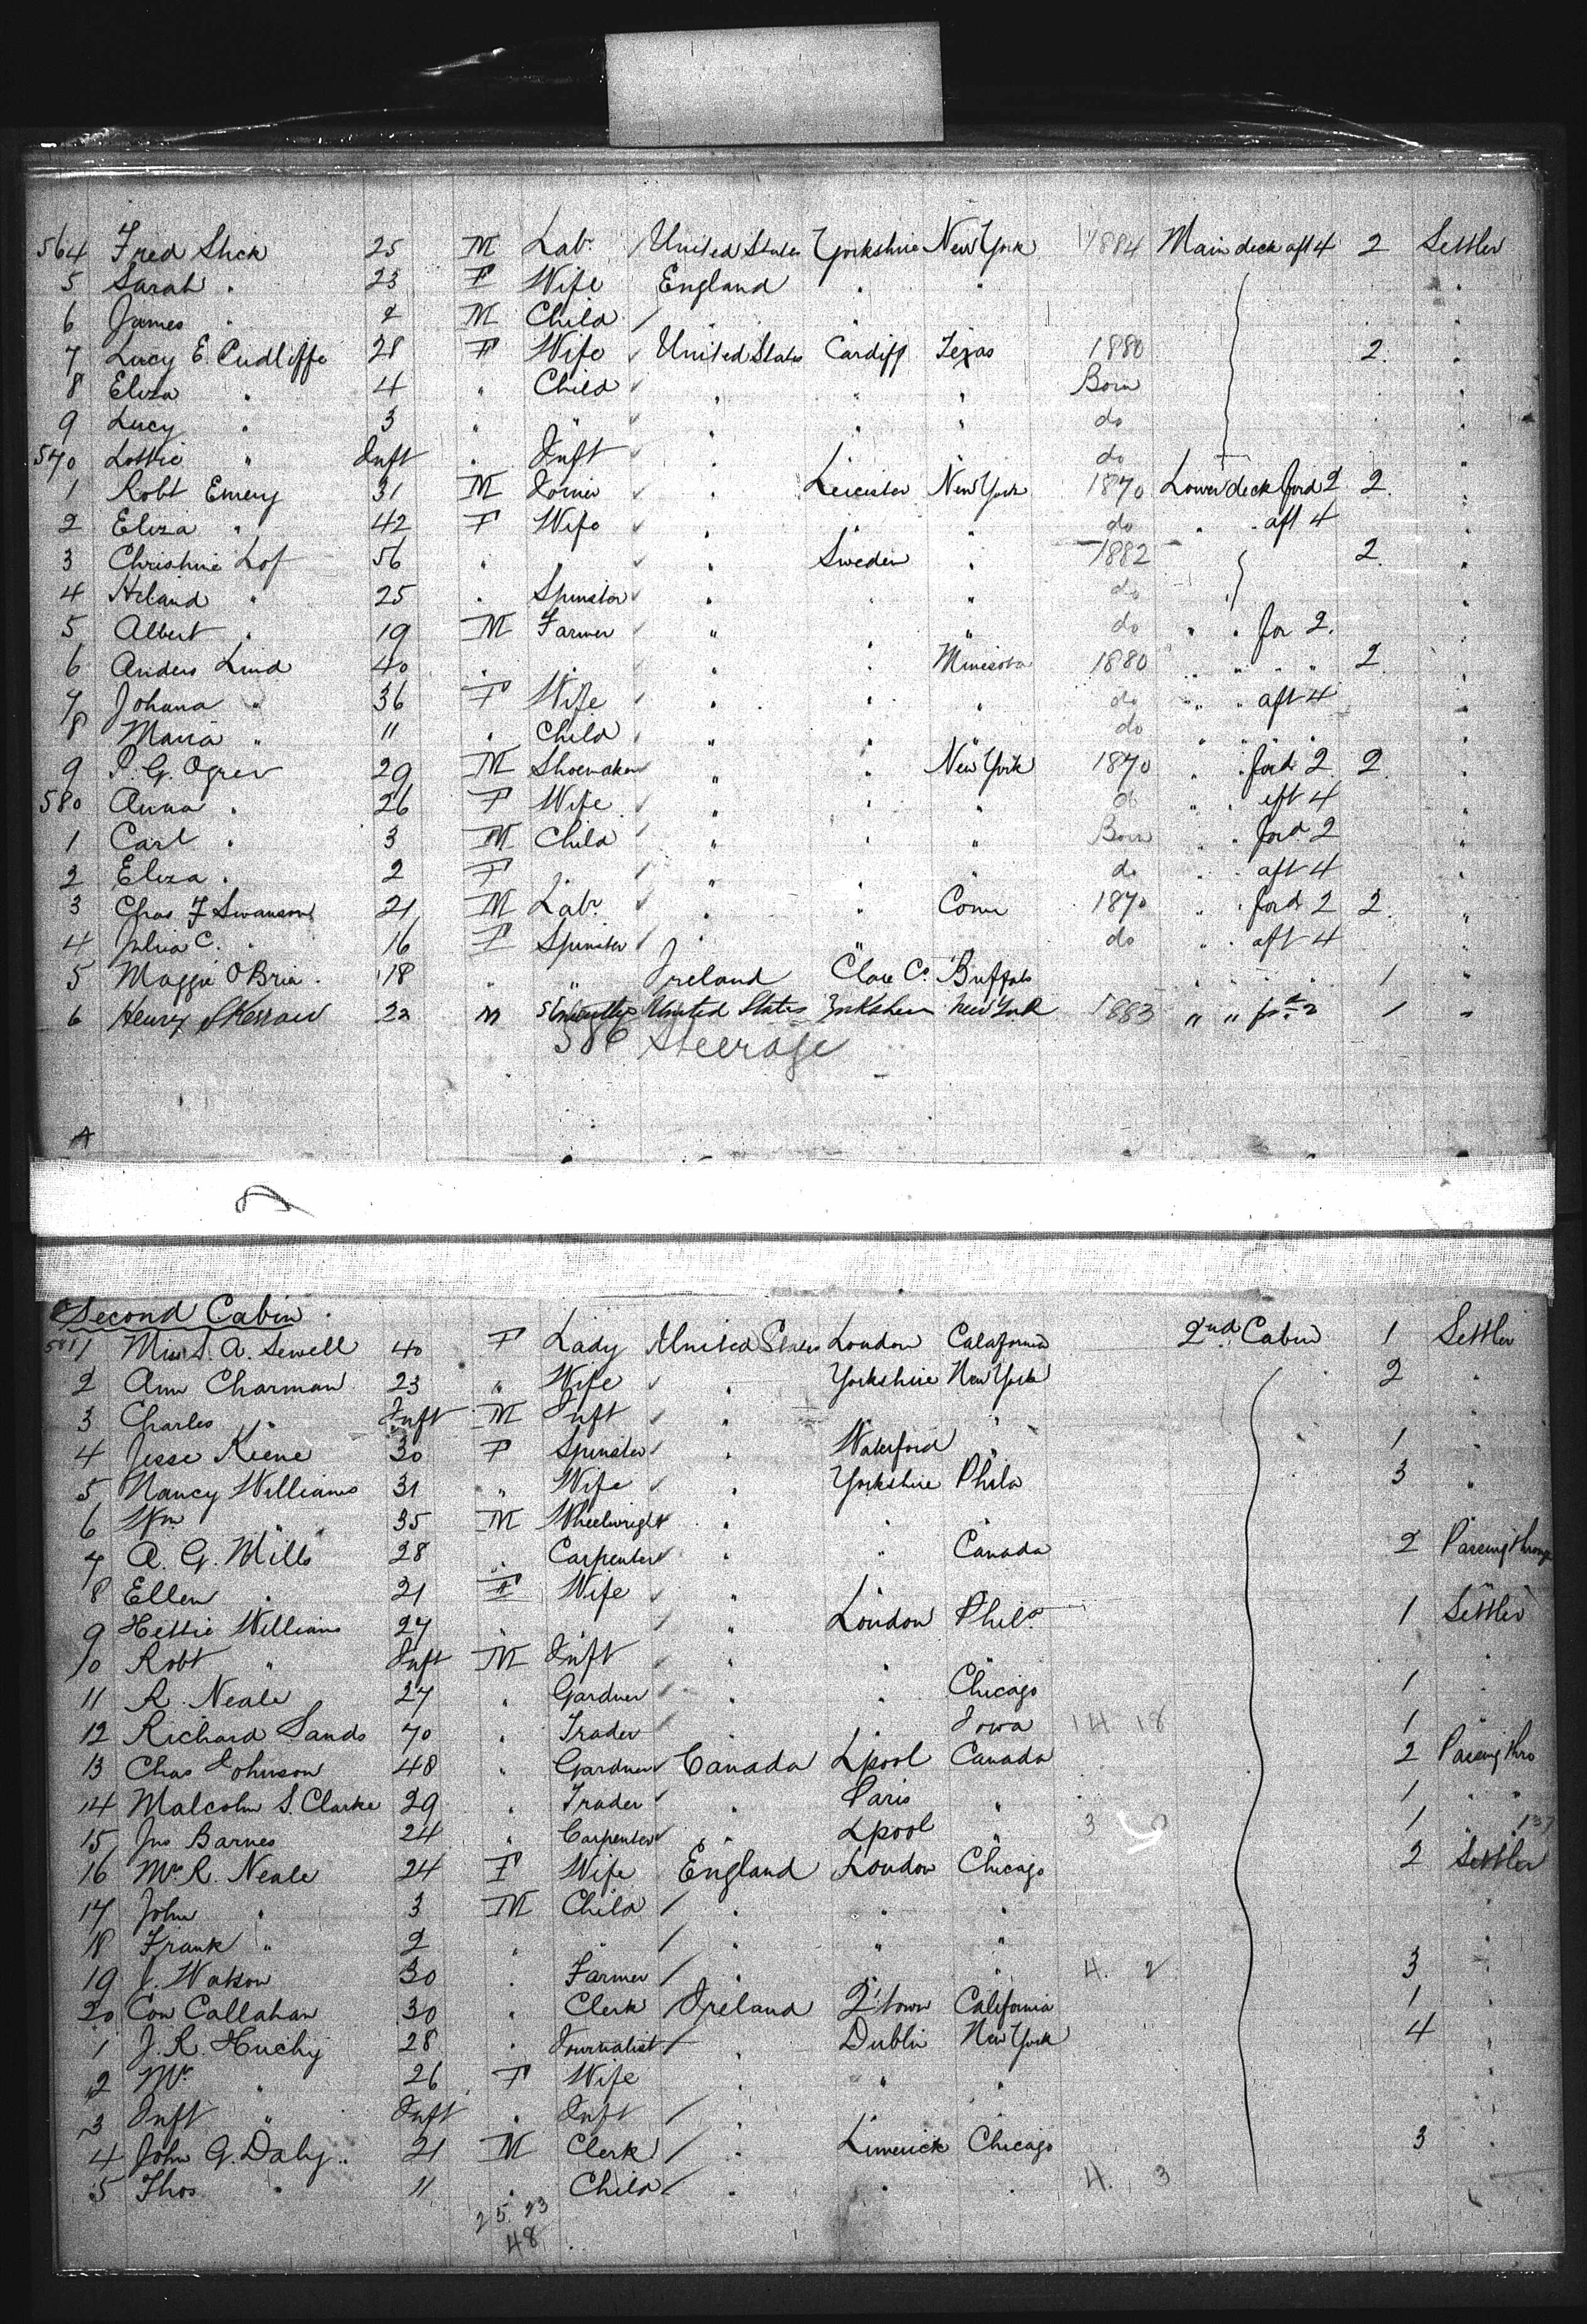 564 Fred Slick 25 M Labr / United States Yorkshire New York 1884 Main deck aft 4 2 Settler
5 Sarah " 23 F Wife England " " "
6 James " 2 M Child / " " "
7 Lucy E. Cudliffe 28 F Wife ✓ United States Cardiff Texas 1880 2 "
8 Eliza " 4 " Child ✓ " " " Born "
9 Lucy " 3 " " ✓ " " " do "
570 Lottie " Inft " Inft ✓ " do "
1 Robt Emery 31 M ✓ " Leicester New York 1870 Lower deck ford 2 2 "
2 Eliza " 42 F Wife ✓ " " do " " aft 4 "
3 Christine Lof 56 " " ✓ " Sweden " 1882 2 "
4 " 25 " Spinster ✓ " " " do "
5 Albert " 19 M Farmer ✓ " " " do " " for 2. "
6 Anders Lind 40 " " ✓ " " Minisota 1880 " " " " 2 "
7 Johana " 36 F Wife ✓ " " " do " " aft 4 "
8 Maria " 11 " Child ✓ " " " do " " " "
9 P. G. Ogrev 29 M Shoemaker ✓ " " New York 1870 " " ford 2 2 "
580 Anna " 26 F Wife ✓ " " " do " " aft 4 "
1 Carl " 3 M Child ✓ " " " Born " " ford 2 "
2 Eliza " 2 F " ✓ " " " do " " aft 4 "
3 Chas F Swanson 21 M Labr ✓ " " Conn 1870 " " ford 2 2 "
4 Julia C. " 16 F Spinster ✓ " " " do " " aft 4 "
5 Maggie O'Bria 18 " " Ireland Clare Co. Buffalo " " " " 1 "
6 Henry 22 M United States Yorkshire New York 1883 " " 2 1 "
586 Steerage
Second Cabin
1 Miss S. A. Sewell 40 F Lady United States London Calafornia 2nd Cabin 1 Settler
2 Ann Charman 23 " Wife ✓ " Yorkshire New York 2 "
3 Charles " Inft M Inft ✓ " " " "
4 Jesse Keene 30 F Spinster ✓ " Waterford " 1 "
5 Nancy Williams 31 " Wife ✓ " Yorkshire Phila 3 "
6 Wm " 35 M Wheelwright " " "
7 A. G. Mills 28 " Carpenter ✓ " " Canada 2 Passing through
8 Ellen " 21 F Wife ✓ " "
9 Hettie Williams 27 " " ✓ " London Phila 1 Settler
10 Robt " Inft M Inft ✓ " " " "
11 R. Neale 27 " Gardner ✓ " " Chicago 1 "
12 Richard Sands 70 " Trader ✓ " " Iowa 14 18 1 "
13 Chas Johnson 48 " Gardner ✓ Canada Lpool Canada 2 Passing thro
14 Malcolm S. Clarke 29 " Trader ✓ " Paris " 1 " "
15 Jno Barnes 24 " Carpenter ✓ " Lpool " 3 1 " 137
16 Mrs R. Neale 24 F Wife England London Chicago 2 Settler
17 John " 3 M Child / " " " "
18 Frank " 2 " " / " " " "
19 J. Watson 30 " Farmer / " " " 4. 2 3 "
20 Con Callahan 30 " Clerk / Ireland Q'town California 1 "
1 J. R. 28 " Journalist / " Dublin New York 4 "
2 Mrs " 26 F Wife " " " "
3 Inft " Inft " Inft / " "
4 John G. Daly 21 M Clerk / " Limerick Chicago 3 "
5 Thos " 11 " Child / " " " 4. 3
25. 23
48